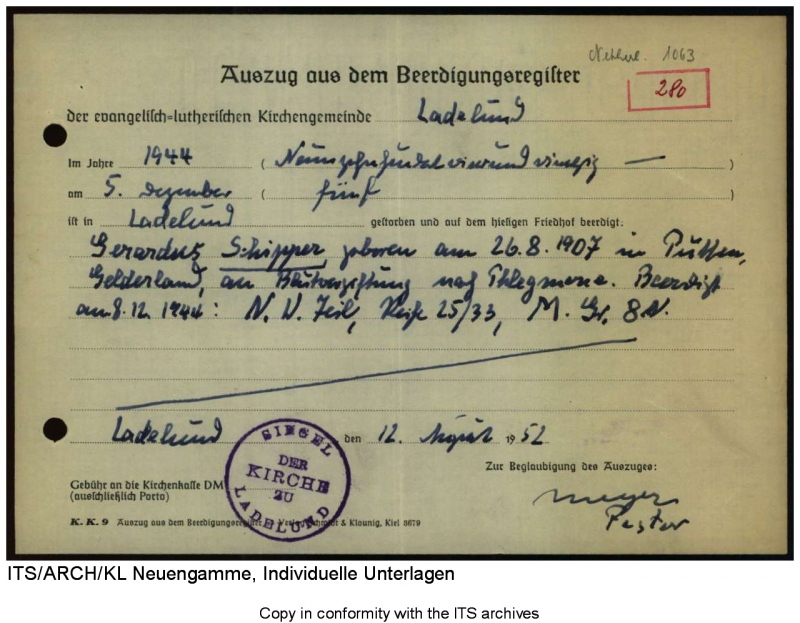 Netherl. 1063
Auszug aus dem Beerdigungsregister
280
der evangelisch=lutherischen Kirchengemeinde Ladelund
Im Jahre 1944 ( Neunzehnhundertvierundvierzig — )
am 5. Dezember ( fünf )
ist in Ladelund gestorben und auf dem hiesigen Friedhof beerdigt:
Gerardus Schipper, geboren am 26.8.1907 in Putten,
Gelderland, an Blutvergiftung nach Phlegmone. Beerdigt
am 8.12.1944: N. W. Teil, Reihe 25/33, M. Gr. 8
Ladelund den 12. August 1952
SIEGEL
DER
KIRCHE
ZU
LADELUND
Zur Beglaubigung des Auszuges:
Gebühr an die Kirchenkasse DM
(ausschließlich Porto)
Meyer
Pastor
K. K. 9 Auszug aus dem Beerdigungsregister Verlag Schmidt & Klaunig, Kiel 8679
ITS/ARCH/KL Neuengamme, Individuelle Unterlagen
Copy in conformity with the ITS archives